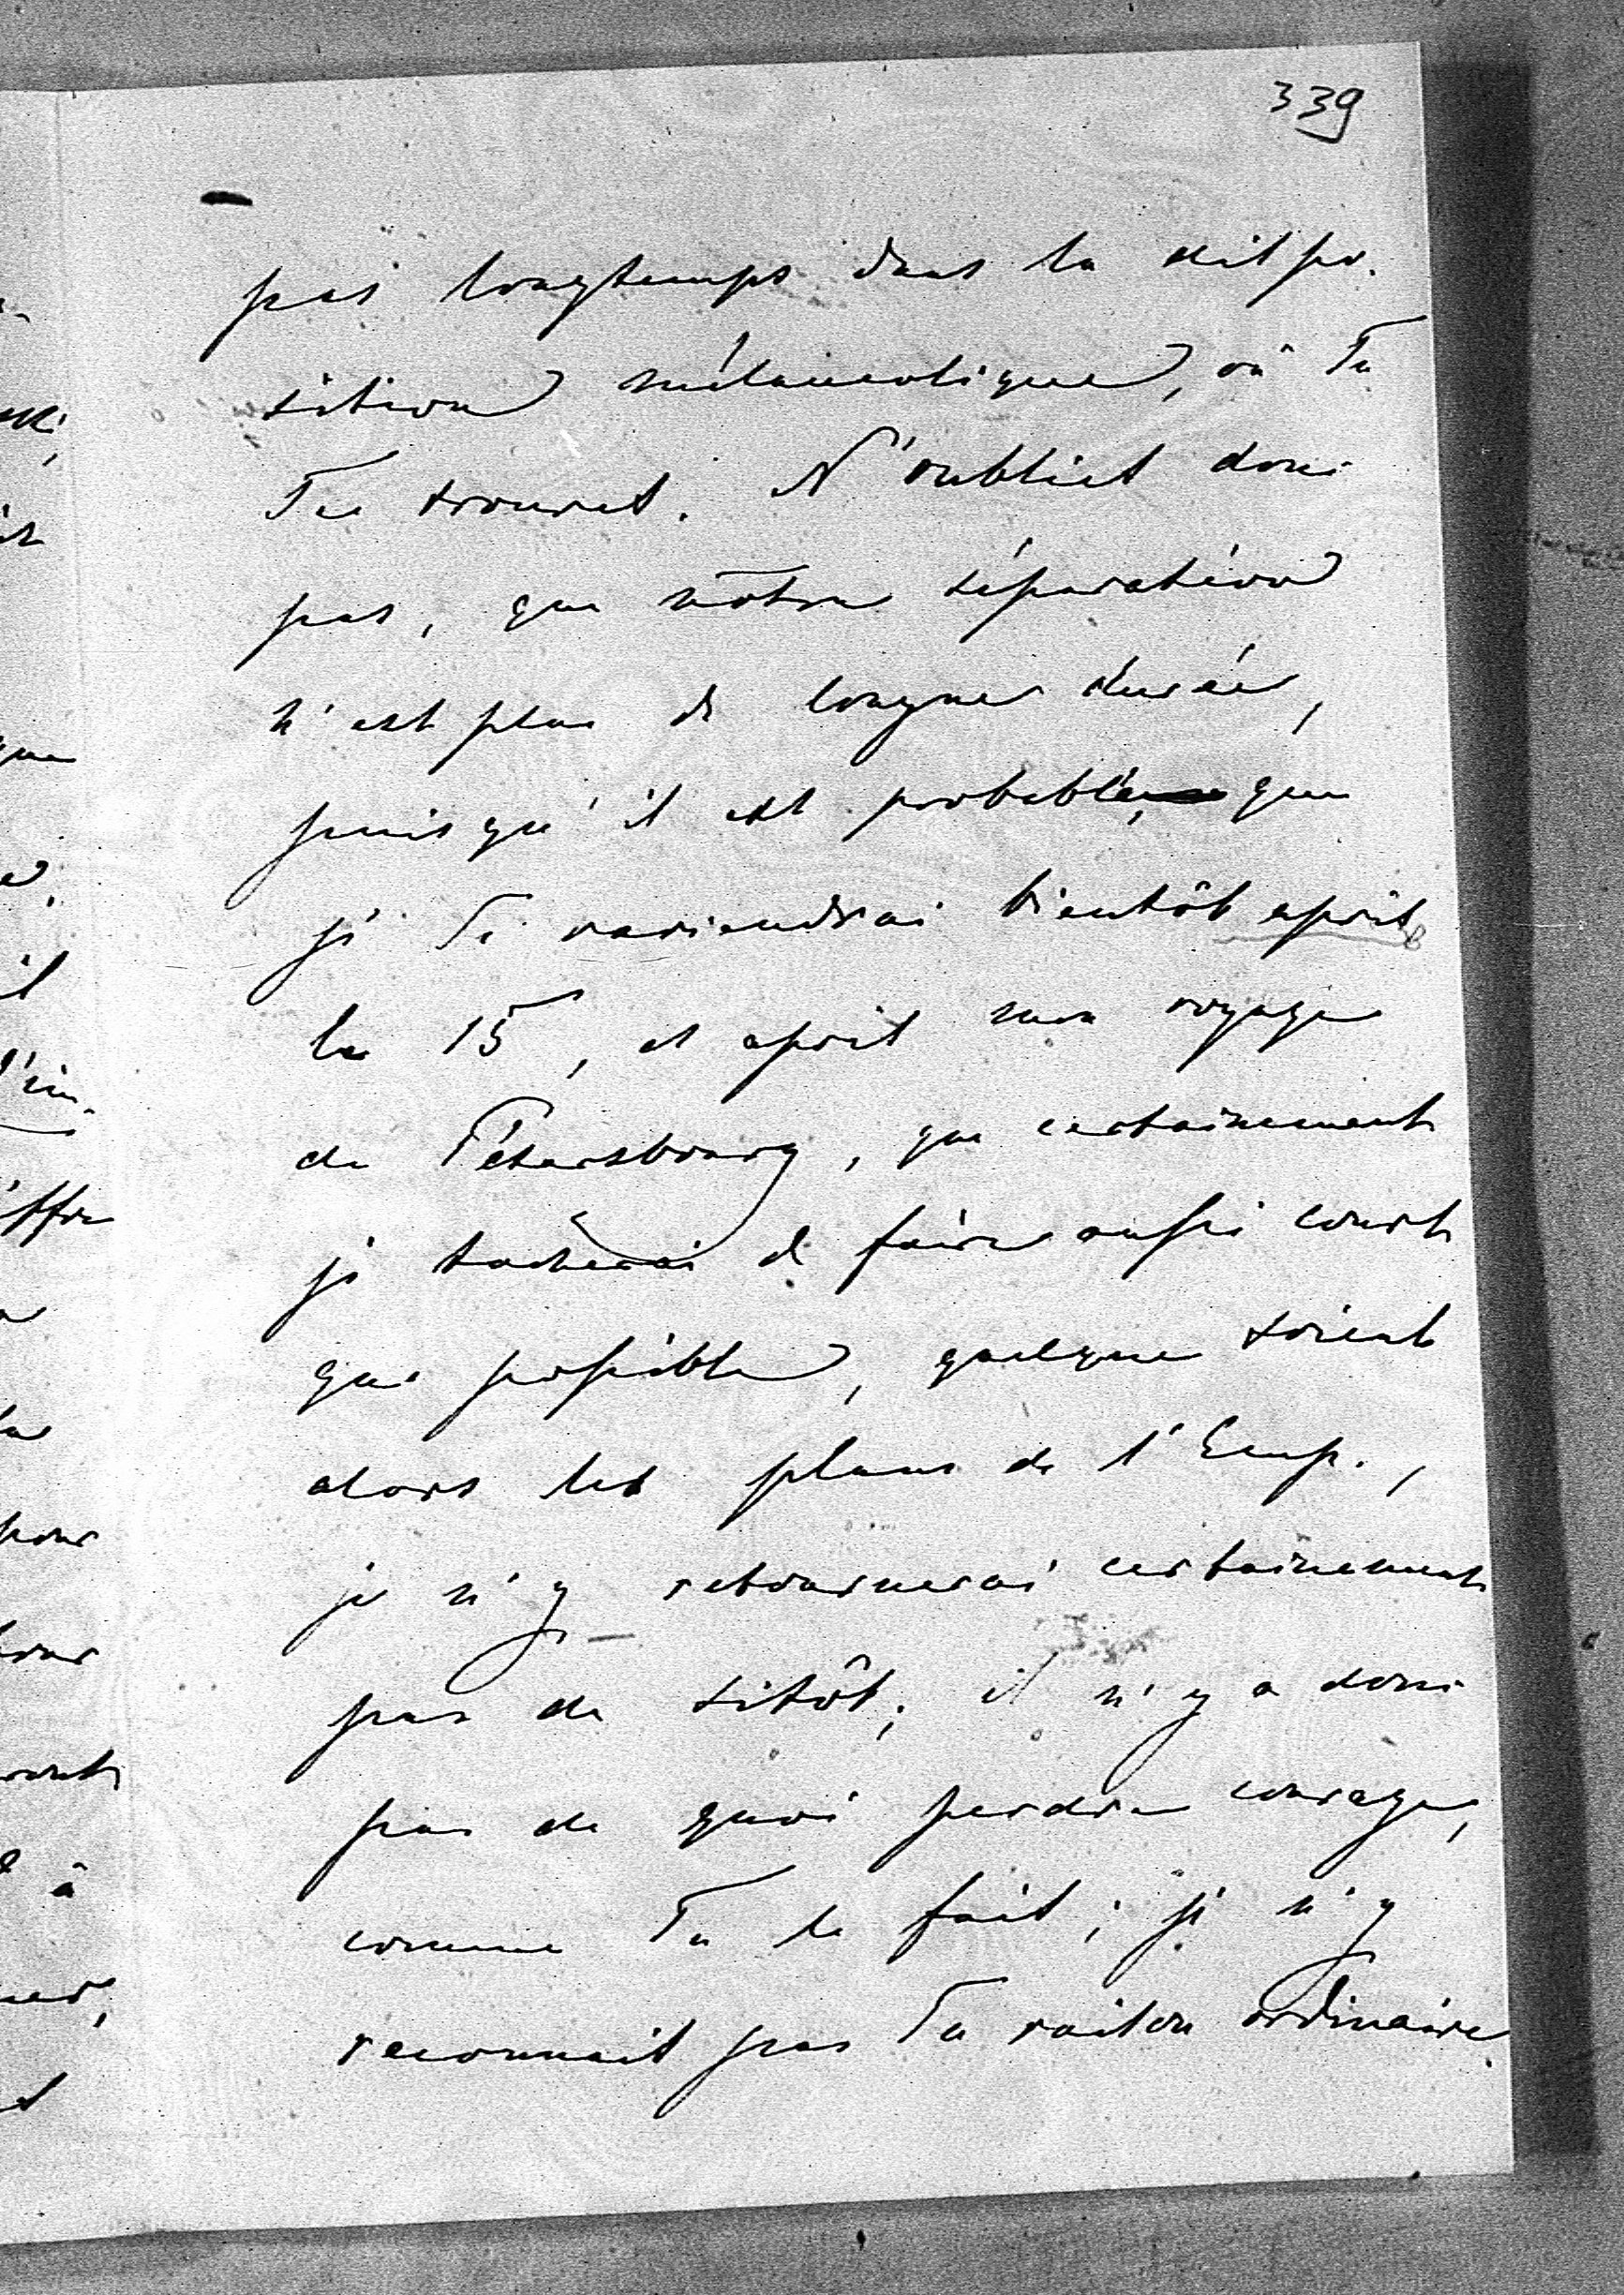 339
pas longtemps dans la dispo-
sition mélancolique, où Tu
Te trouves. N'oublies donc
pas, que nôtre séparation
n'est plus de longue durée,
puisqu'il est probable, que
je Te reviendrai bientôt après
le 15, et après mon voyage
de Pétersbourg, que certainement
je tacherai de faire aussi court
que possible, quelque soient
alors les plans de l'Emp.,
je n'y retournerai certainement
pas de sitôt; il n'y a donc
pas de quoi perdre courage,
comme Tu le fais; je n'y
reconnais pas Ta raison ordinaire.